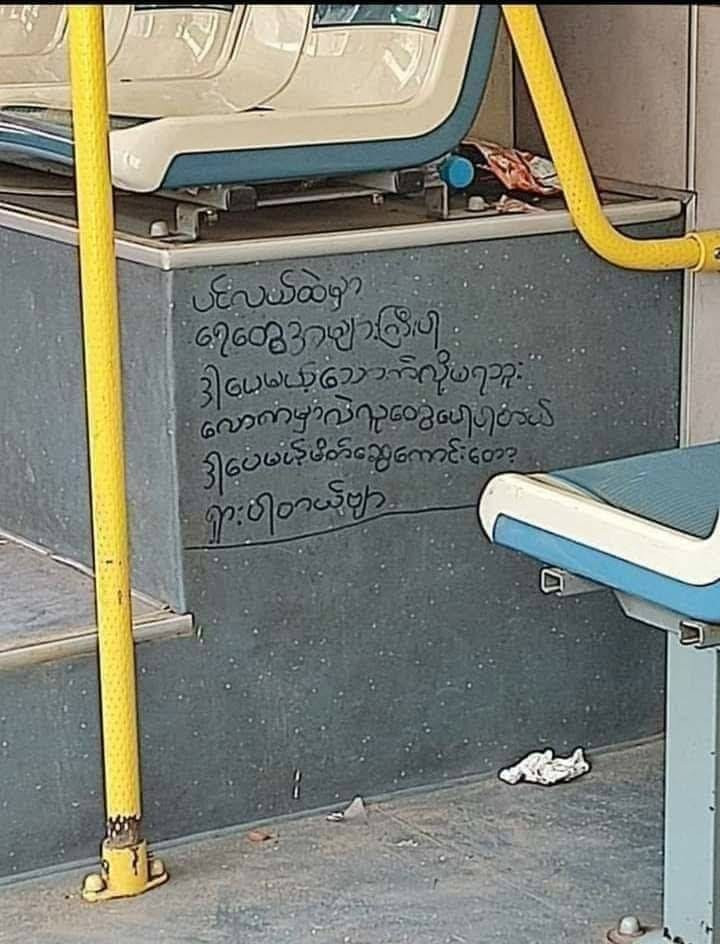 ပင်လယ်ထဲမှာ
ရေတွေအများကြီးပါ
ဒါပေမယ့်သောက်လို့မရဘူး
လောကမှာလဲလူတွေပေါပါတယ်
ဒါပေမယ့်မိတ်ဆွေကောင်းတော့
ရှားပါတယ်ဗျာ